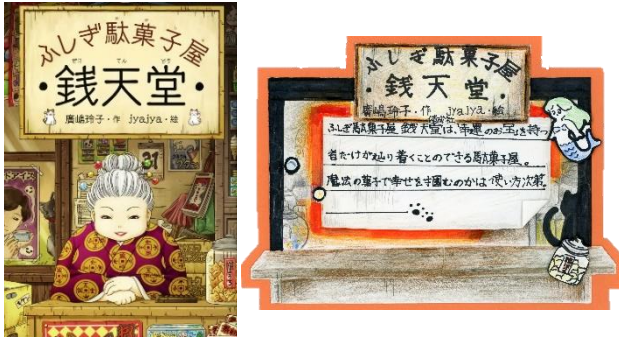 ふしぎ駄菓子屋
銭天堂
廣嶋玲子・作 jyajya・絵
ふしぎ駄菓子屋
銭天堂
廣嶋玲子・作 jyajya・絵
ふしぎ駄菓子屋 銭天堂は、幸運のお宝を持つ
者だけが辿り着くことのできる駄菓子屋。
魔法の菓子で幸せを掴むのかは使い方次第。